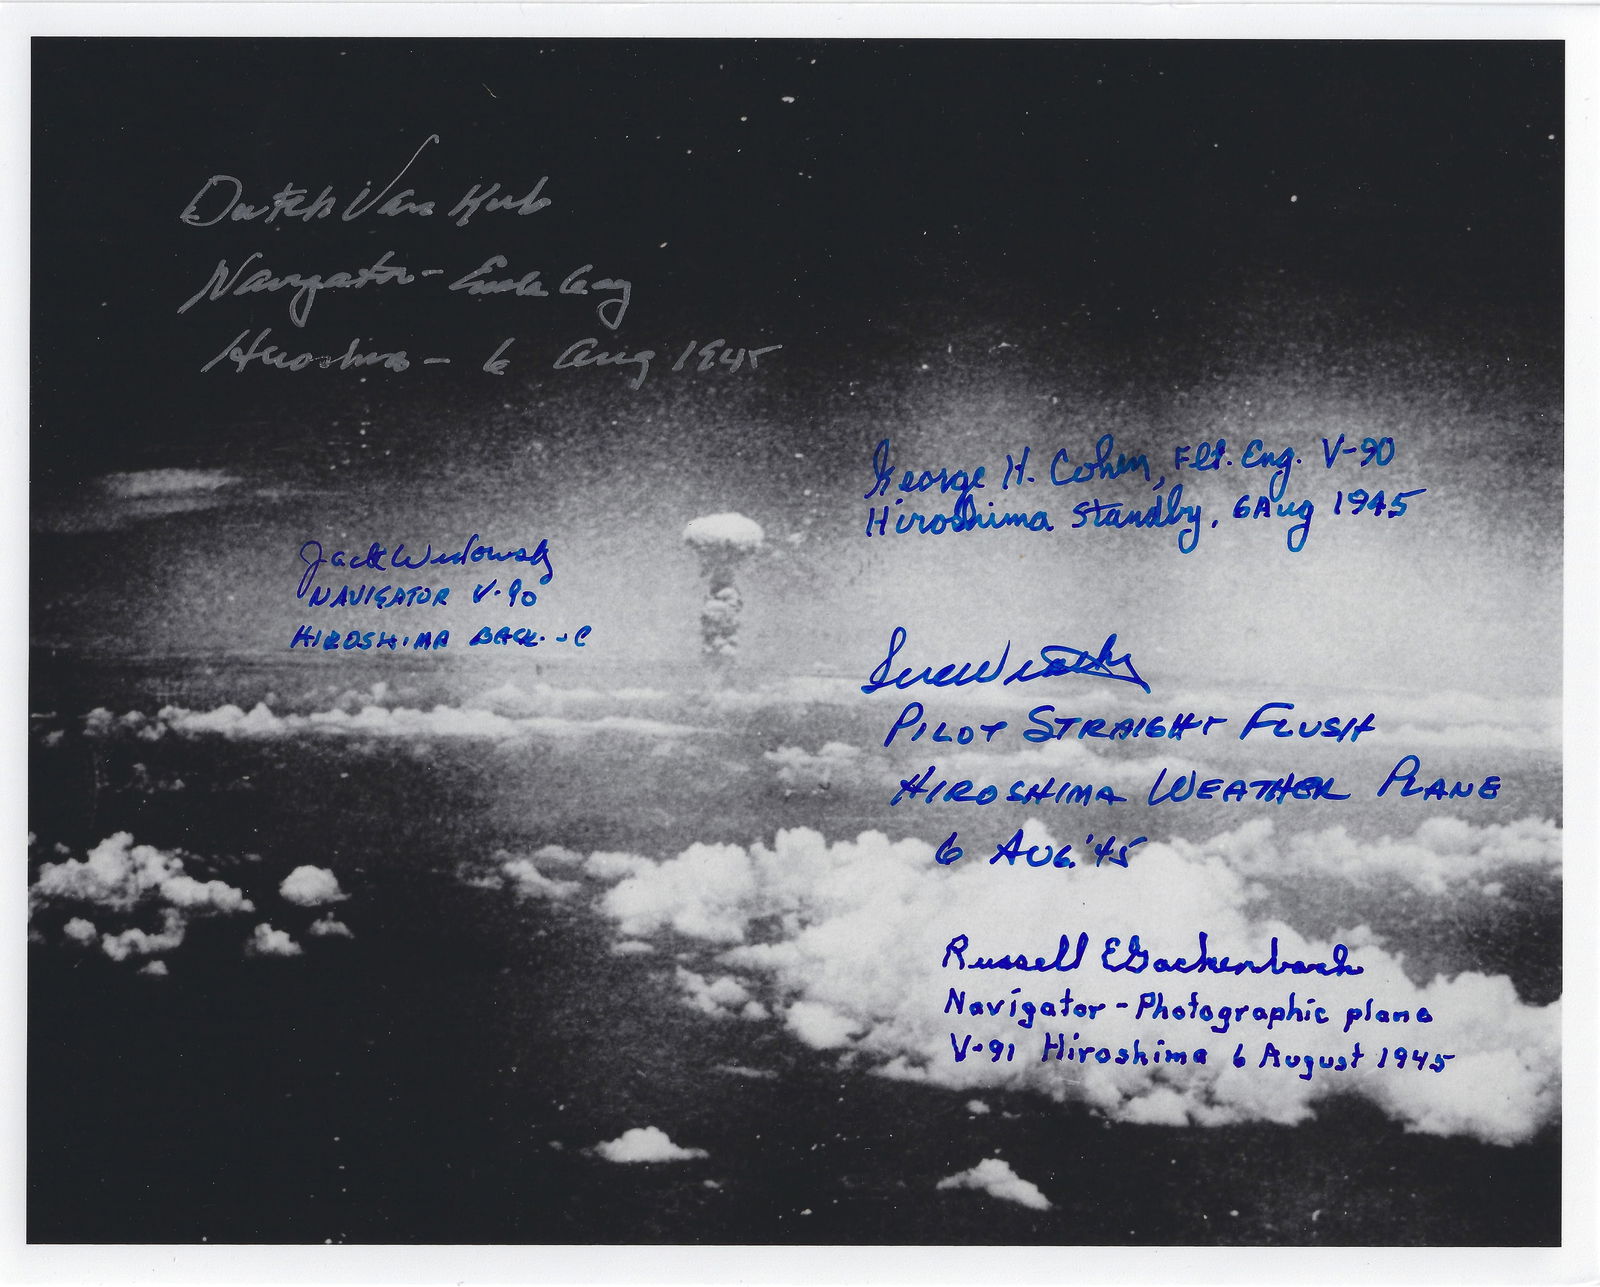 Dutch Van Kirk
Navigator - Enola Gay
Hiroshima - 6 Aug 1945
George H. Cohen, Flt. Eng. V-90
Hiroshima Standby, 6 Aug 1945
Jack Widowsky
NAVIGATOR V-90
HIROSHIMA BACK-
PILOT STRAIGHT FLUSH
HIROSHIMA WEATHER PLANE
6 AUG. '45
Russell E Gackenbach
Navigator - Photographic plane
V-91 Hiroshima 6 August 1945